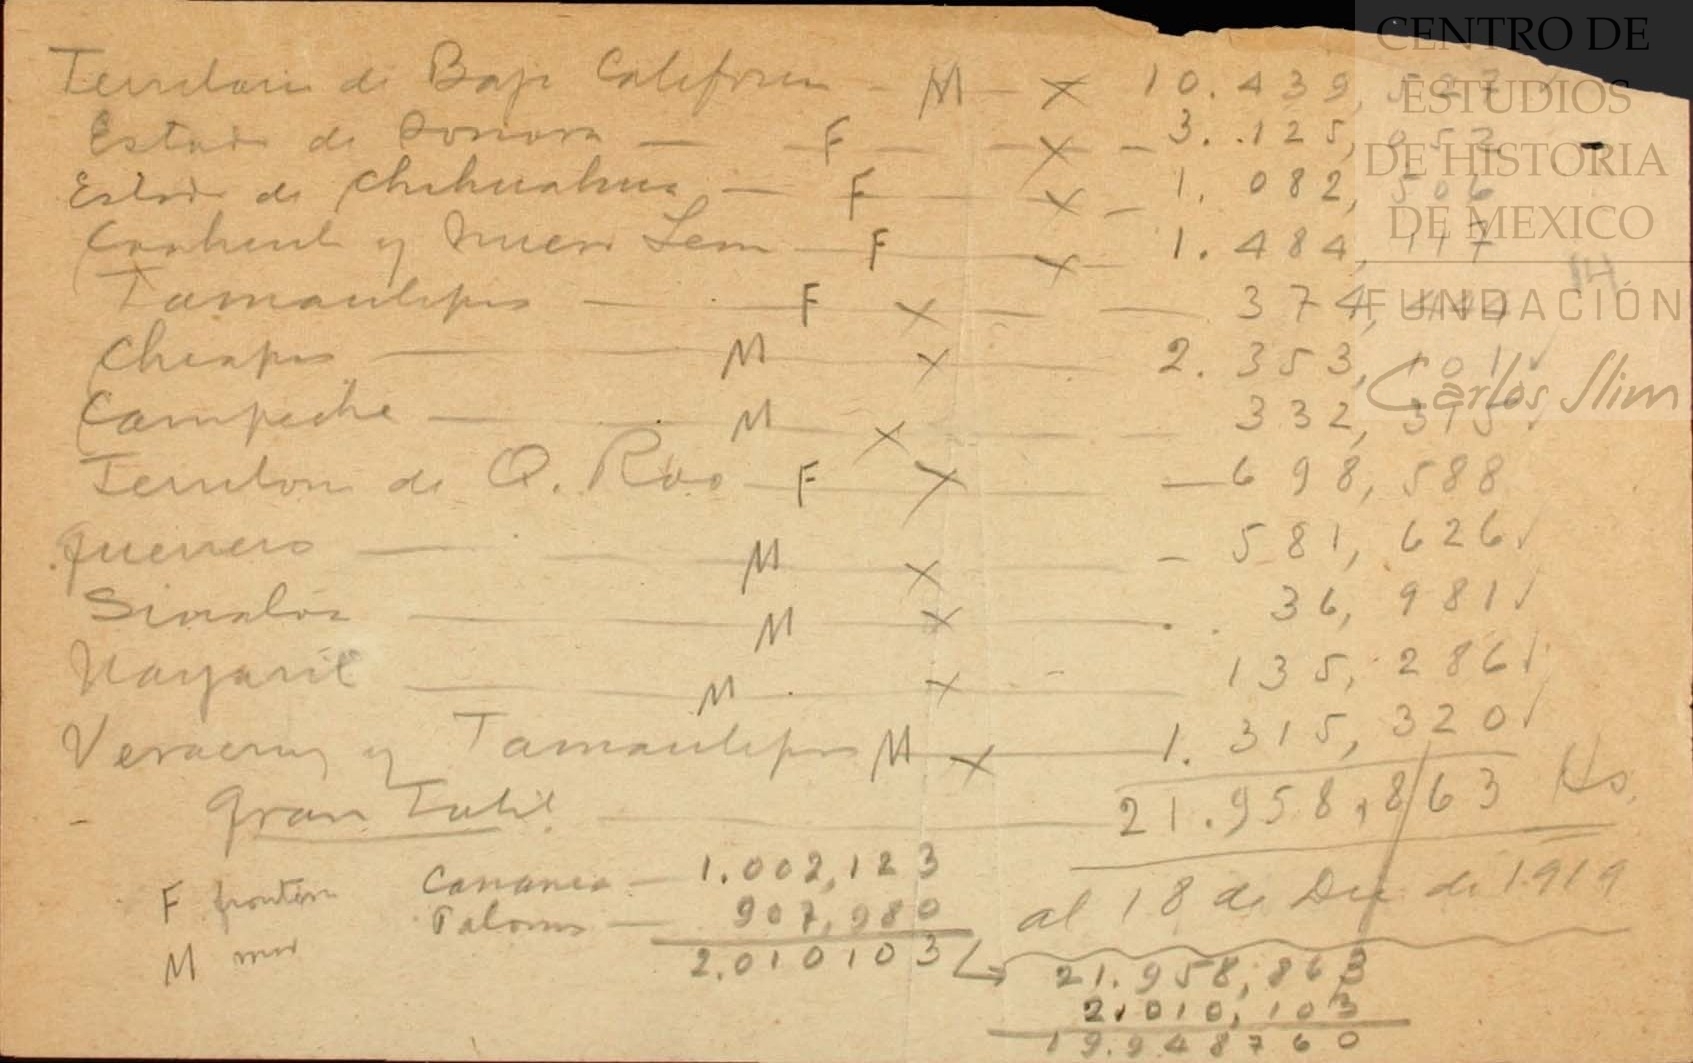 CENTRO DE
ESTUDIOS
DE HISTORIA
DE MEXICO
FUNDACIÓN
Carlos Slim
Territorio de Baja California - M - X 10.439,527 ✓
Estado de Sonora — F — X - 3.125,052 -
Estado de Chihuahua — F — X - 1.082,506
Coahuila y Nuevo Leon — F — X - 1.484,117
14
Tamaulipas — F X — 374,444
Chiapas — M X — 2.353,101 ✓
Campeche — M X — 332,315 ✓
Territorio de Q. Roo — F X — 698,588
Guerrero — M X — 581,626 ✓
Sinaloa — M X — 36,981 ✓
Nayarit — M X — 135,286 ✓
Veracruz y Tamaulipas M — X — 1.315,320 ✓
- Gran Total — 21.958,863 Hs.
F frontera Cananea — 1.002,123
al 18 de Dic de 1919
Palomas — 907,980
M mar 2.010103
21.958,863
2.010,103
19.948760